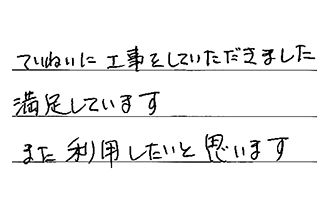 ていねいに工事をしていただきました
満足しています
また利用したいと思います